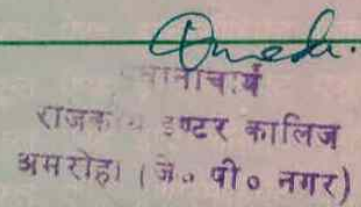 प्रधानाचार्य
राजकीय इण्टर कालिज
अमरोहा (जे० पी० नगर)